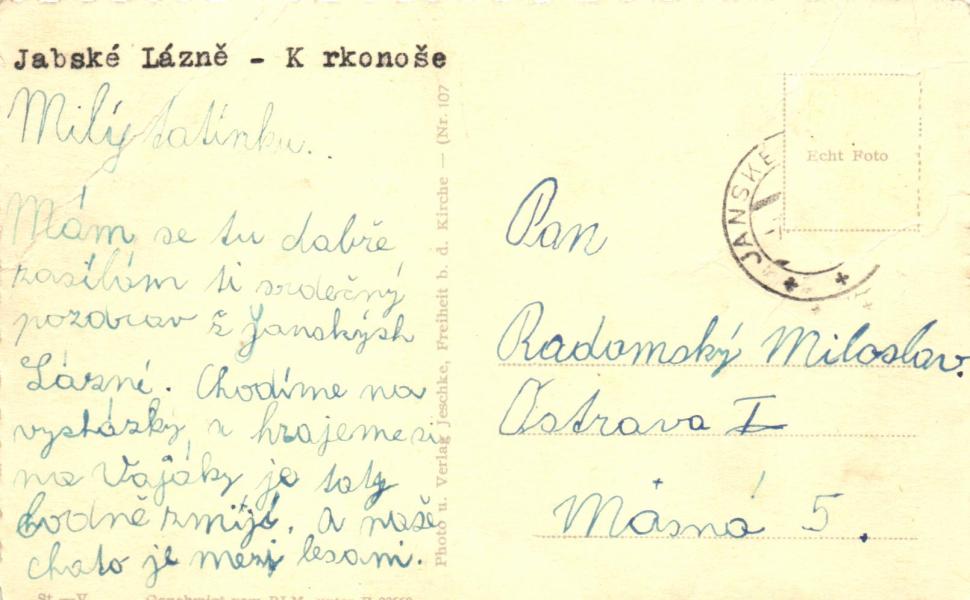 Jabské Lázně - K rkonoše
Milý tatínku.
Mám se tu dobře
zasílám ti srdečný
pozdrav z Janskýsh
Lázné. Chodíme na
vycházky, a hrajeme si
na Vojáky je taty
hodně zmijí. A naše
chata je mezi lesami.
Photo u. Verlag Jeschke, Freiheit b. d. Kirche — (Nr. 107
Echt Foto
JANSKÉ
Pan
Radomský Miloslav.
Ostrava I
Másná 5.
St.—V.